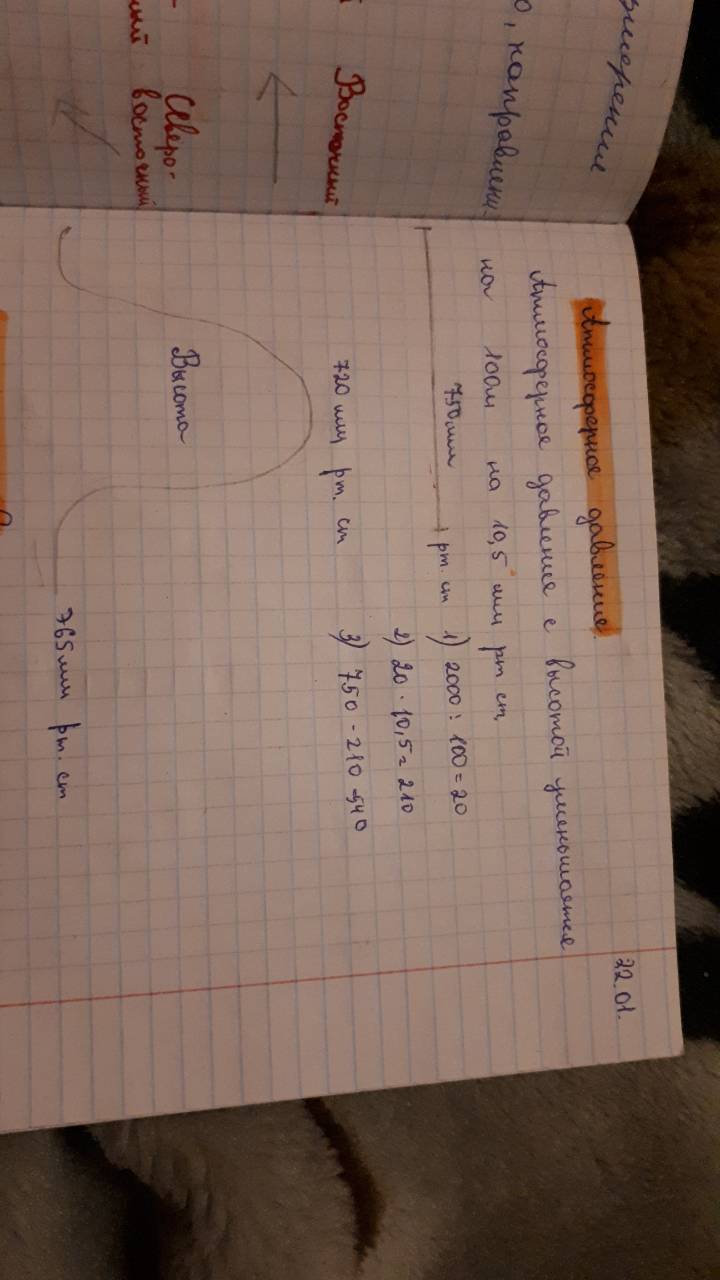 жерение
о, направлени-
Восточный
Северо-
восточный
ный
22.01.
Атмосферное давление.
Атмосферное давление с высотой уменьшается
на 100м на 10,5 мм рт ст,
750мм рт. ст
1) 2000 : 100 = 20
2) 20 · 10,5 = 210
3) 750 - 210 = 540
720 мм рт. ст
Высота
765мм рт. ст